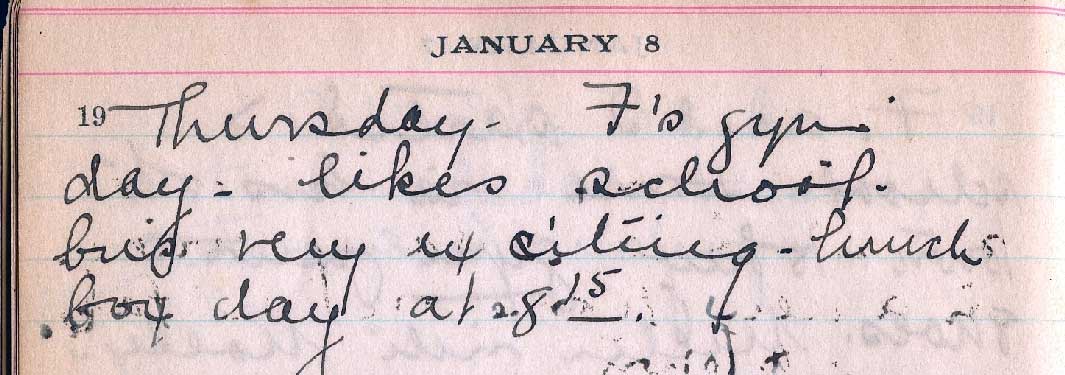 JANUARY 8
19 Thursday - F's gym
day - likes school.
very exciting - lunch
box day at 8 15.